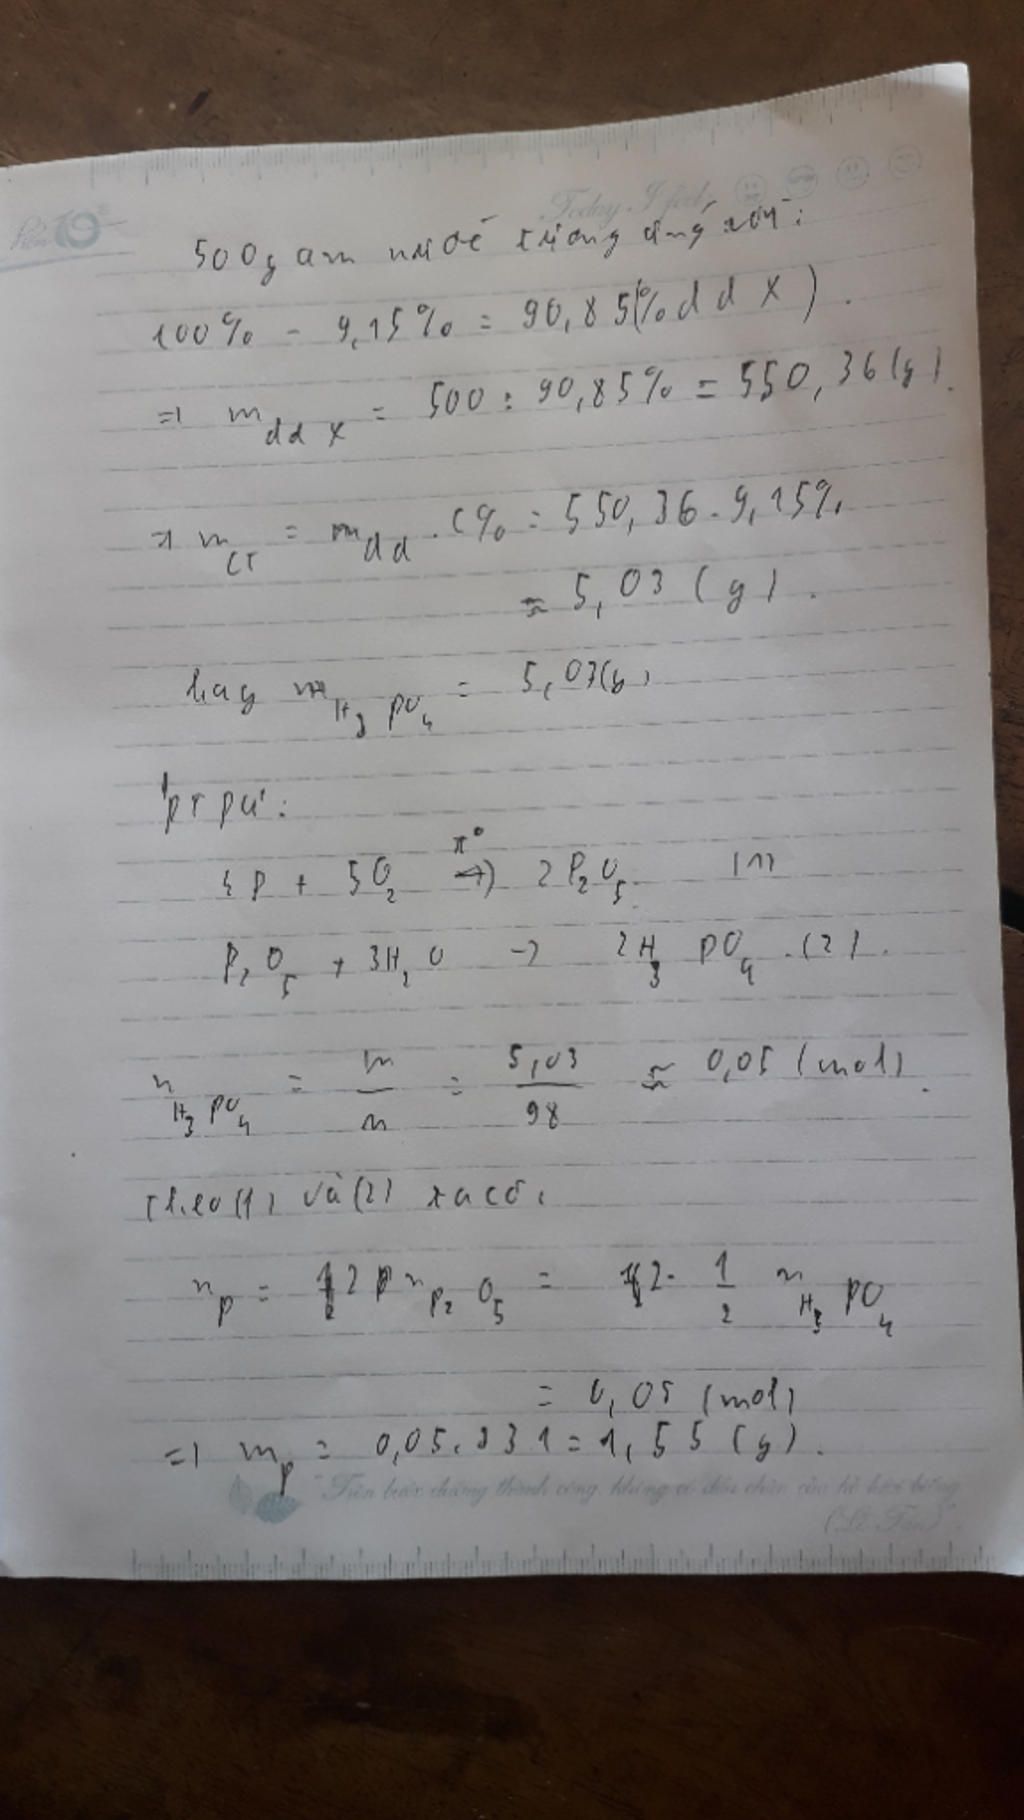 Today I feel
500gam nước tương ứng với:
100% - 9,15% = 90,85(% dd X).
=> m dd X = 500 : 90,85% = 550,36(g).
=> m CT = m dd . C% = 550,36 . 9,15%
≈ 5,03 (g).
hay m H3PO4 = 5,03(g)
PTPƯ:
4P + 5O2 →(t°) 2P2O5 (1)
P2O5 + 3H2O → 2H3PO4 (2).
n H3PO4 = m/n = 5,03/98 ≈ 0,05 (mol).
Theo (1) và (2) ta có:
n P = 2 n P2O5 = 2 . 1/2 n H3PO4
= 0,05 (mol)
=> m P = 0,05 . 31 = 1,55 (g).
"Trên bước đường thành công, không có dấu chân của kẻ lười biếng"
(Lỗ Tấn)